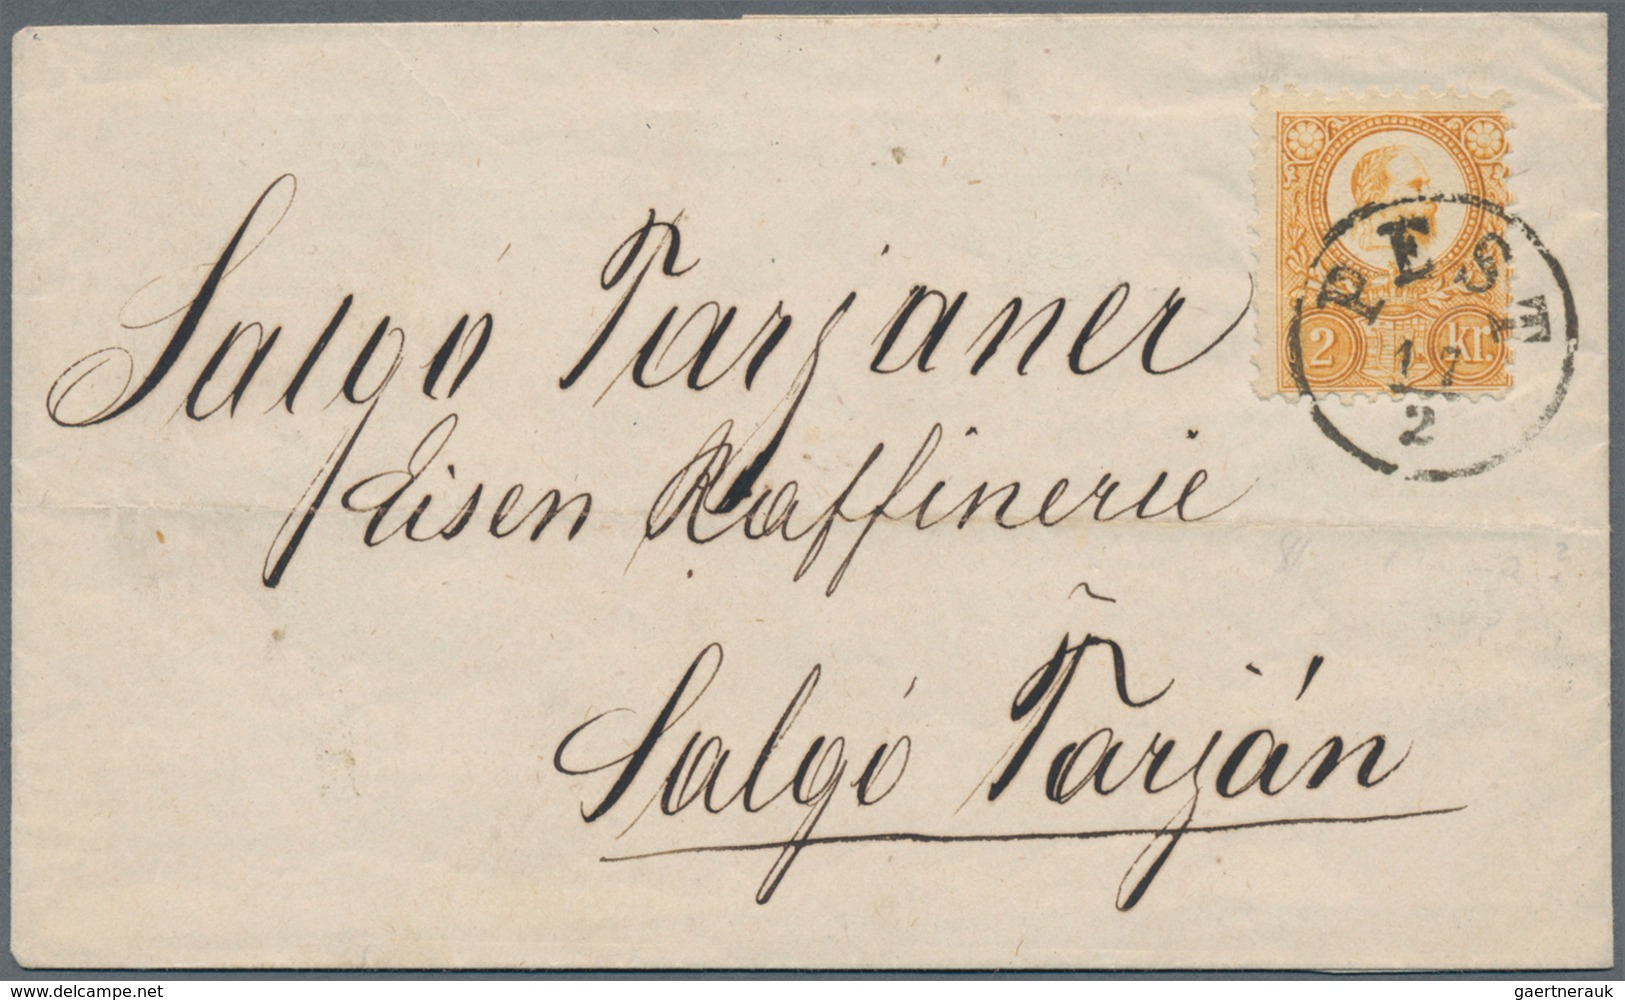 Salgó Tarjaner
Eisen Raffinerie
Salgó Tarján
2 kr.
PEST
17
2
www.delcampe.net
gaertnerauk